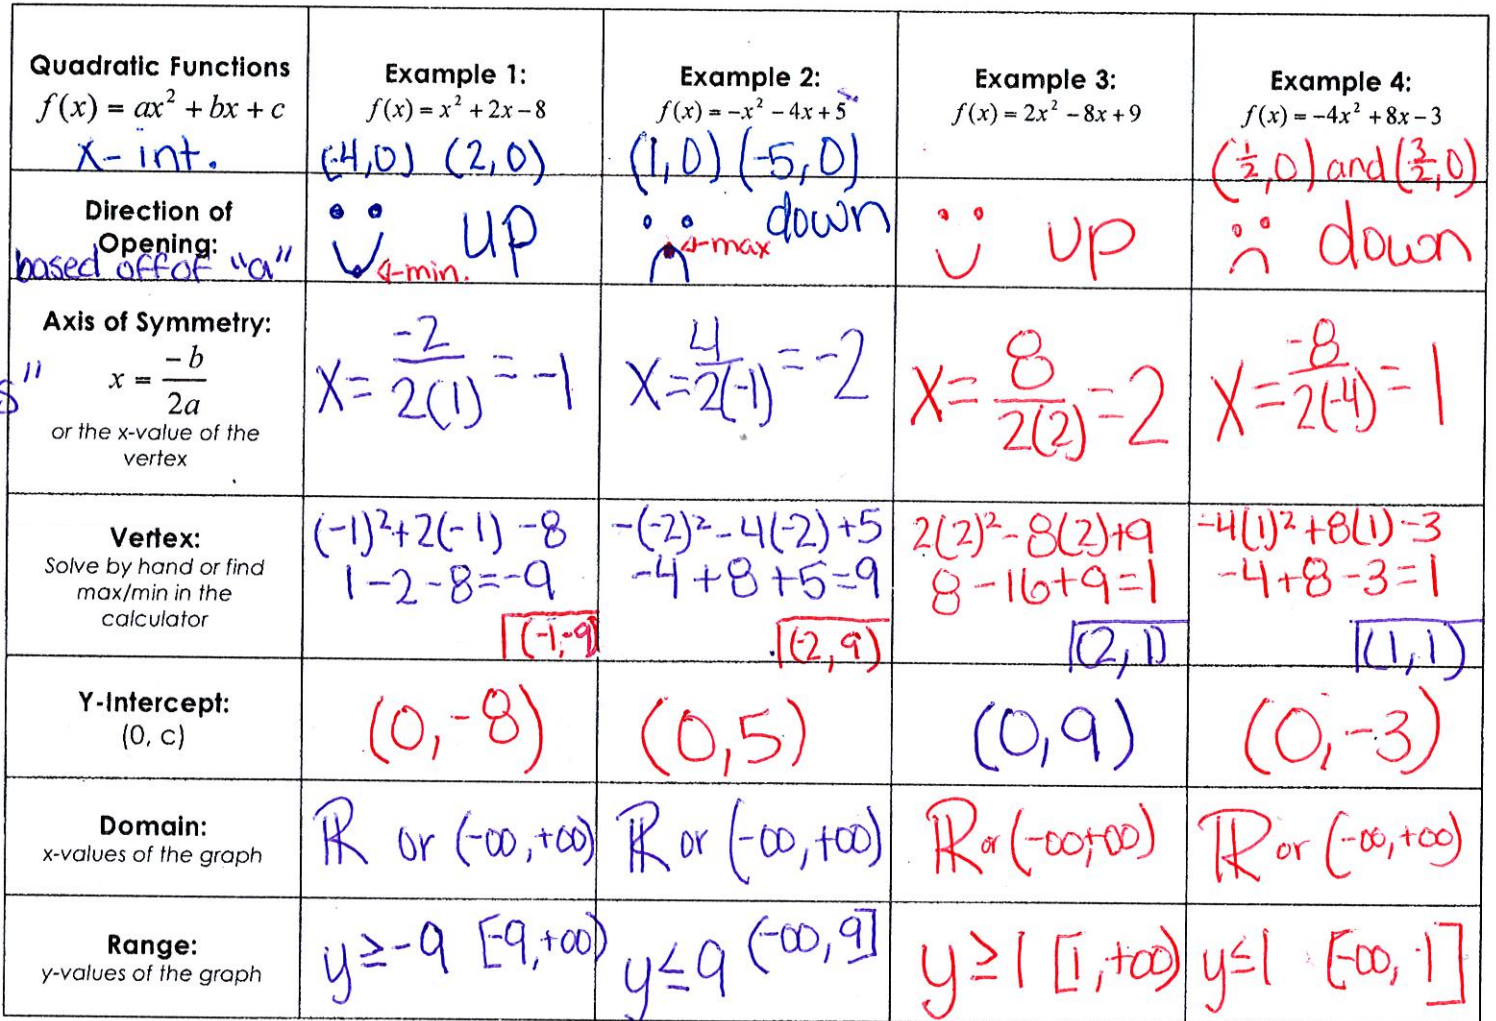 Quadratic Functions
f(x) = ax² + bx + c
x-int.
Example 1:
f(x) = x² + 2x − 8
(-4,0) (2,0)
Example 2:
f(x) = −x² − 4x + 5
(1,0) (-5,0)
Example 3:
f(x) = 2x² − 8x + 9
Example 4:
f(x) = −4x² + 8x − 3
(1/2,0) and (3/2,0)
Direction of
Opening:
based off of "a"
up
←min.
down
←max
up
down
Axis of Symmetry:
s"
x = −b/2a
or the x-value of the
vertex
x = -2/2(1) = -1
x = 4/2(-1) = -2
x = 8/2(2) = 2
x = -8/2(-4) = 1
Vertex:
Solve by hand or find
max/min in the
calculator
(-1)²+2(-1)-8
1-2-8=-9
(-1,-9)
-(-2)²-4(-2)+5
-4+8+5=9
(-2,9)
2(2)²-8(2)+9
8-16+9=1
(2,1)
-4(1)²+8(1)-3
-4+8-3=1
(1,1)
Y-Intercept:
(0, c)
(0,-8)
(0,5)
(0,9)
(0,-3)
Domain:
x-values of the graph
ℝ or (-∞,+∞)
ℝ or (-∞,+∞)
ℝ or (-∞,+∞)
ℝ or (-∞,+∞)
Range:
y-values of the graph
y≥-9 [-9,+∞)
y≤9 (-∞,9]
y≥1 [1,+∞)
y≤1 [-∞,1]